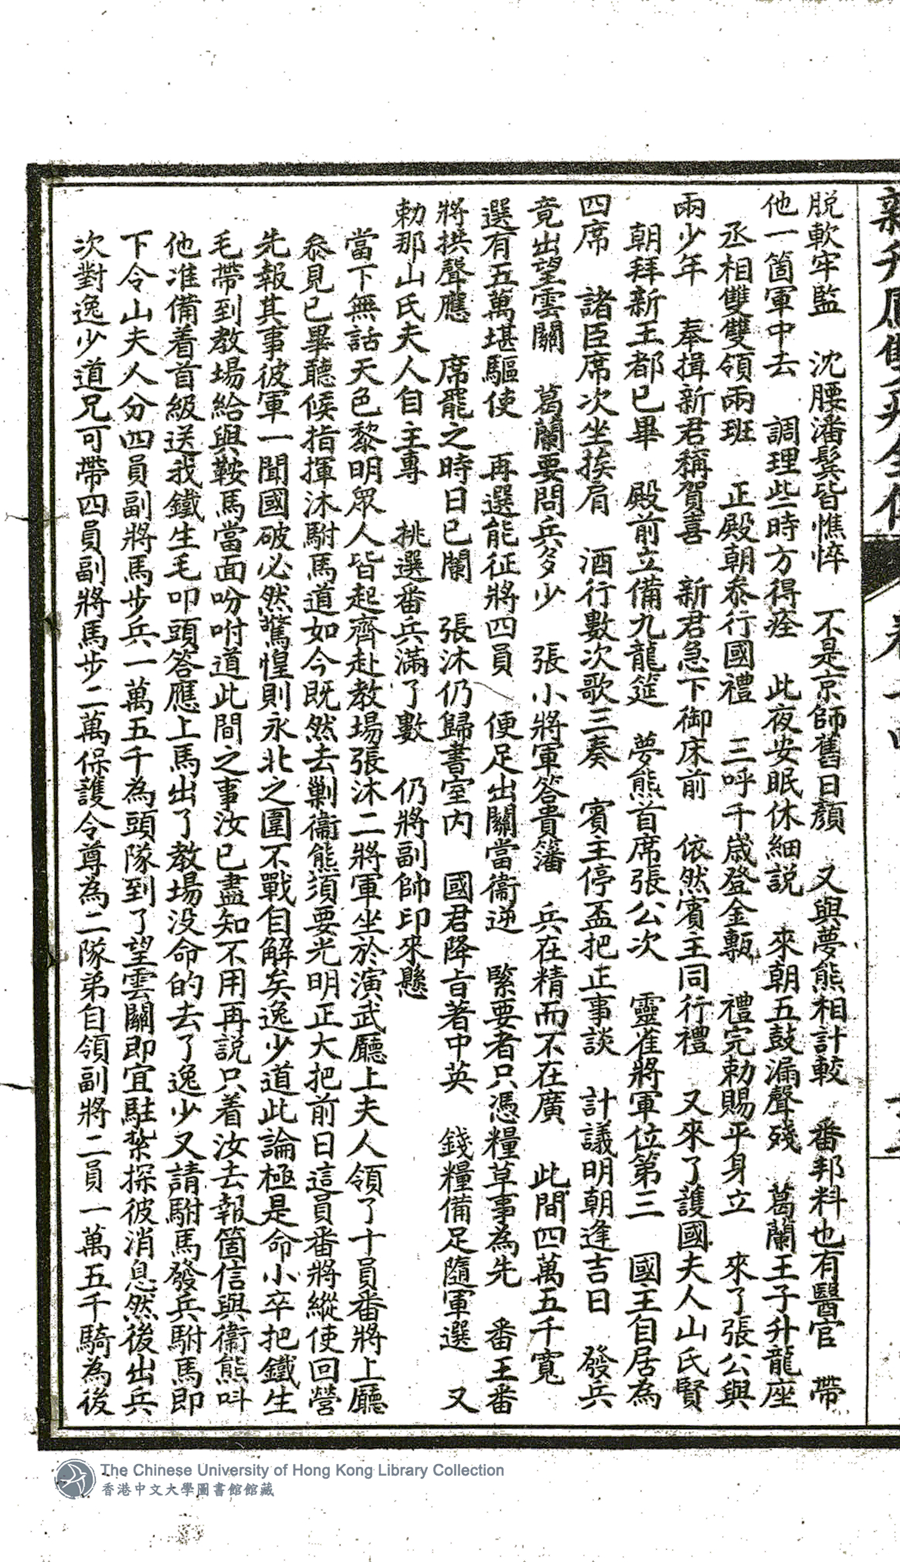 脫軟牢監　沈腰潘鬂皆憔悴　不是京師舊日顏　又與夢熊相計較　番邦料也有醫官　帶
他一箇軍中去　調理些時方得痊　此夜安眠休細說　來朝五鼓漏聲殘　葛蘭王子升龍座
丞相雙雙領兩班　正殿朝叅行國禮　三呼千歲登金甎　禮完勅賜平身立　來了張公與
兩少年　奉揖新君稱賀喜　新君急下御床前　依然賓王同行禮　又來了護國夫人山氏賢
朝拜新王都已畢　殿前立備九龍筵　夢熊首席張公次　靈雀將軍位第三　國王自居為
四席　諸臣席次坐挨肩　酒行數次歌三奏　賓主停盃把正事談　計議明朝逢吉日　發兵
竟出望雲關　葛蘭要問兵多少　張小將軍答貴籓　兵在精而不在廣　此間四萬五千寬
選有五萬堪驅使　再選能征將四員　便足出關當衞逆　緊要者只憑糧草事為先　番王番
將拱聲應　席罷之時日已闌　張沐仍歸書室內　國君降旨著中英　錢糧備足隨軍選　又
勅那山氏夫人自主專　挑選番兵滿了數　仍將副帥印來懸
當下無話天色黎明眾人皆起齊赴教場張沐二將軍坐於演武廳上夫人領了十員番將上廳
叅見已畢聽候指揮沐駙馬道如今既然去剿衞熊須要光明正大把前日這員番將縱使回營
先報其事彼軍一聞國破必然驚惶則永北之圍不戰自解矣逸少道此論極是命小卒把鐵生
毛帶到教場給與鞍馬當面吩咐道此間之事汝已盡知不用再說只着汝去報箇信與衞熊呌
他准備着首級送我鐵生毛叩頭答應上馬出了教場没命的去了逸少又請駙馬發兵駙馬即
下令山夫人分四員副將馬步兵一萬五千為頭隊到了望雲關即宜駐紮探彼消息然後出兵
次對逸少道兄可帶四員副將馬步二萬保護令尊為二隊弟自領副將二員一萬五千騎為後
The Chinese University of Hong Kong Library Collection
香港中文大學圖書館館藏